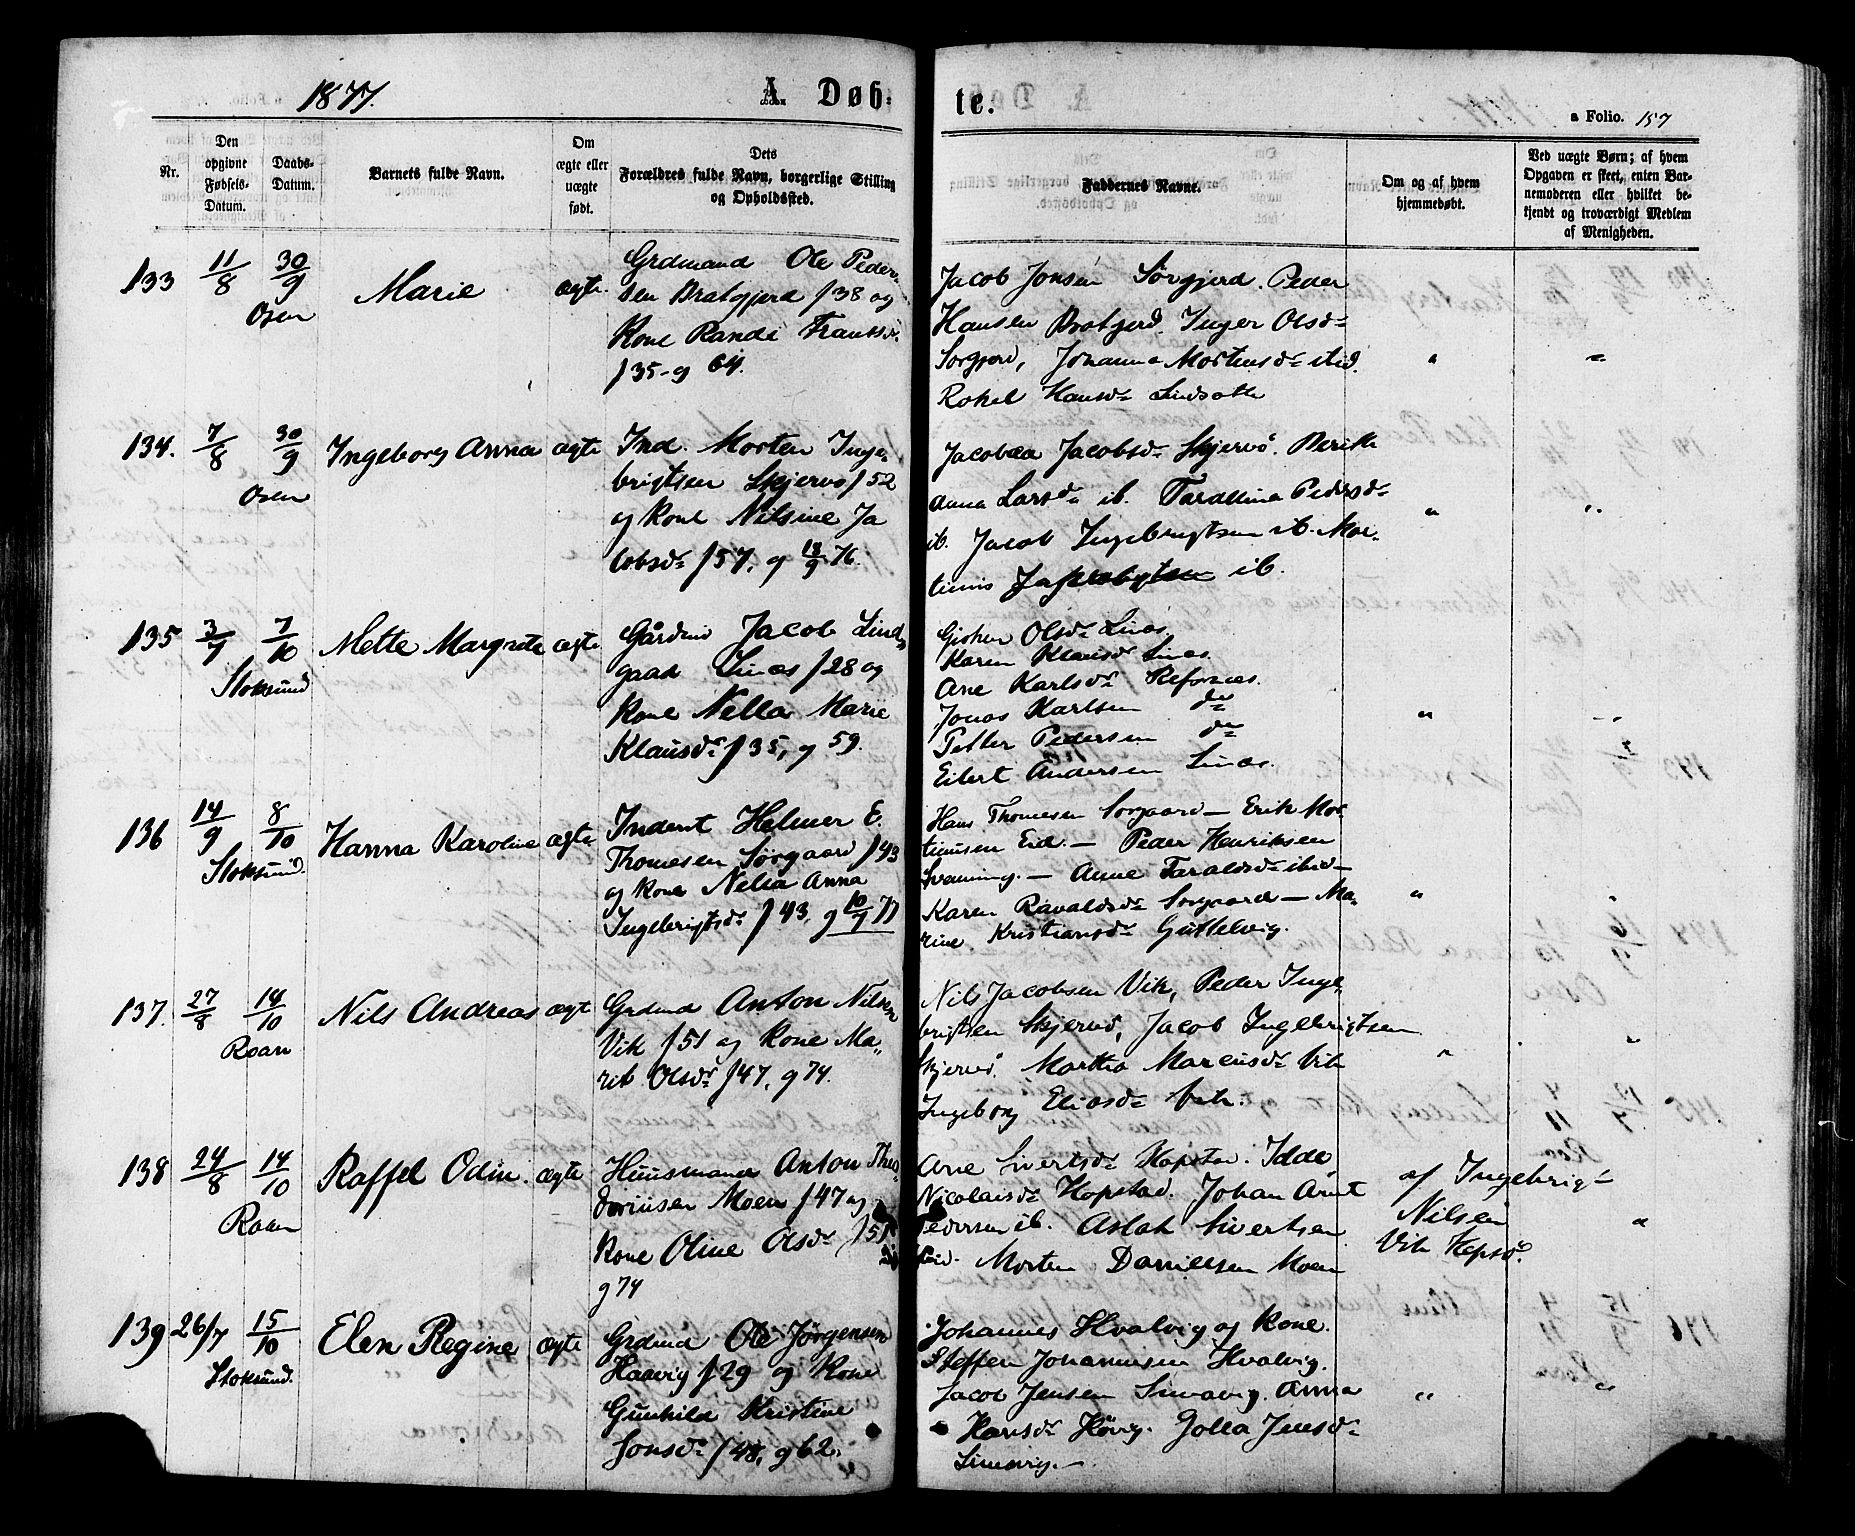 1877.
A. Døb-
te.
a Folio. 157
Nr.
Den
opgivne
Fødsels-
Datum.
Daabs-
Datum.
Barnets fulde Navn.
Om
ægte eller
uægte
født.
Dets
Forældres fulde Navn, borgerlige Stilling
og Opholdssted.
Faddernes Navne.
Om og af hvem
hjemmedøbt.
Ved uægte Børn; af hvem
Opgaven er skeet, enten Bar-
nemoderen eller hvilket be-
kjendt og troværdigt Medlem
af Menigheden.
133 11/8 30/9 Marie ægte.
Osen
Grdmand Ole Peder-
sen Bratgjerd f38 og
Kone Randi
f35 - g 64.
Jacob Jonsen Sørgjerd. Peder
Hansen Bratgjerd. Inger Olsd.
Sørgjerd, Johanna Mortensd. ibid.
Rakel Hansd.
" "
134. 7/8 30/9 Ingeborg Anna ægte
Osen
Ind. Morten Inge-
brigtsen Skjervø f52
og Kone Nilsine Ja
cobsd. f57, g 18/9 76.
Jacobæa Jacobsd. Skjervø. Berith
Anna Larsd. ib. Pedersd.
ib. Jacob Ingebrigtsen ib. Mor-
tinus ib.
" "
135 3/9 7/10 Mette Margrete ægte
Stoksund
Gårdmd Jacob Lind-
gaad Linæs f28 og
Kone Nella Marie
Klausd. f35, g 59.
Olsd. Linæs
Karen Klausd. Linæs.
Ane Karlsd. Refsnæs.
Jonas Karlsen do
Petter Pedersen do
Eilert Andersen Linæs.
" "
136 14/9 8/10 Hanna Karoline ægte
Stoksund.
Inderst Helmer E.
Thomesen Sørgaard f43
og Kone Nelia Anna
Ingebrigtsd. f43, g 10/7 77
Hans Thomesen Sørgaard — Erik Mor
tinusen Eid. — Peder Henriksen
Svenning. — Anne Taraldsd. ibid —
Karen Ravaldsd. Sørgaard — Ma-
rine Kristiansd. Guttelvig.
" "
137. 27/8 14/10 Nils Andreas ægt
Roan
Grdmd Anton Nilsen
Vik f51 og Kone Ma-
rit Olsd. f47, g 74.
Nils Jacobsen Vik, Peder Inge-
brigtsen Skjervø, Jacob Ingebrigtsen
Skjervø. Martha Marcusd. Vik
Ingeborg Eliasd. Vik.
" "
138 24/8 14/10 Raffel Odin. ægte
Roan
Huusmand Anton Theo
dorinsen Moen f47 og
Kone Oline Olsd. f51
g 74
Ane Sivertsd. Hopstad. Idde
Nicolaisd. Hopstad. Johan Arnt
Pedersen ib. Aslak Sivertsen
ibid. Morten Danielsen Moen
af Ingebrigt
Nilsen
Vik Kepsø.
"
139 26/7 15/10 Elen Regine ægte
Stoksund.
Grdmd Ole Jørgensen
Haarvig f29 og Kone
Gunhild Kristine
Jonsd. f48, g 62.
Johannes Hvalvig og Kone.
Steffen Johannesen Hvalvig.
Jacob Jensen Simavig. Anna
Hansd. Høvig. Golla Jensd.
Simavig. —
" "